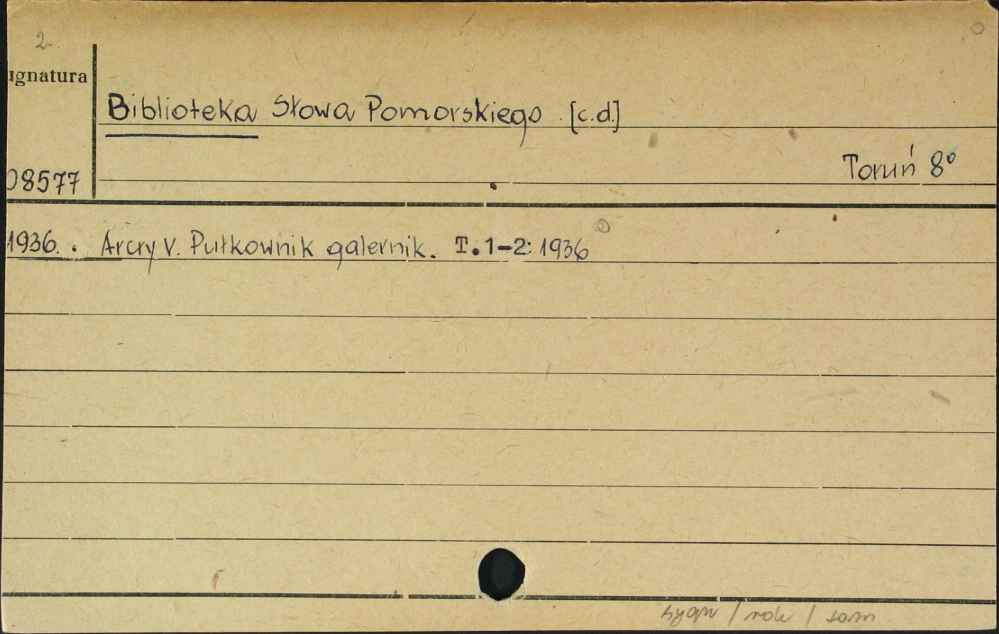 2
ignatura
Biblioteka Słowa Pomorskiego [c.d.]
Toruń 8°
08577
1936. . Arcry V. Pułkownik galernik. T.1-2: 1936
sygn / rok / tom